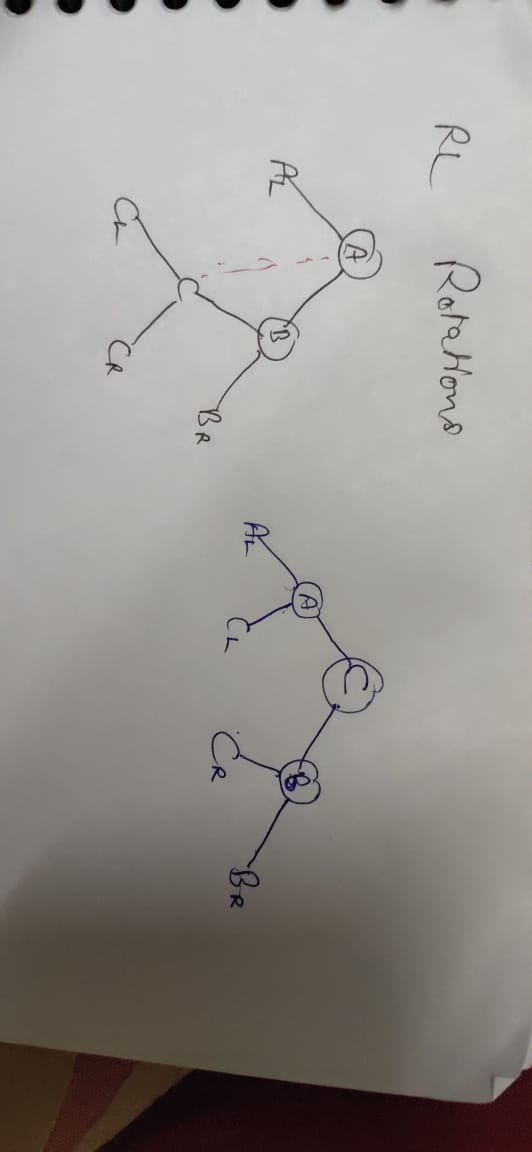 RL Rotations
A
AL B
C BR
CL CR
C
A B
AL CL CR BR